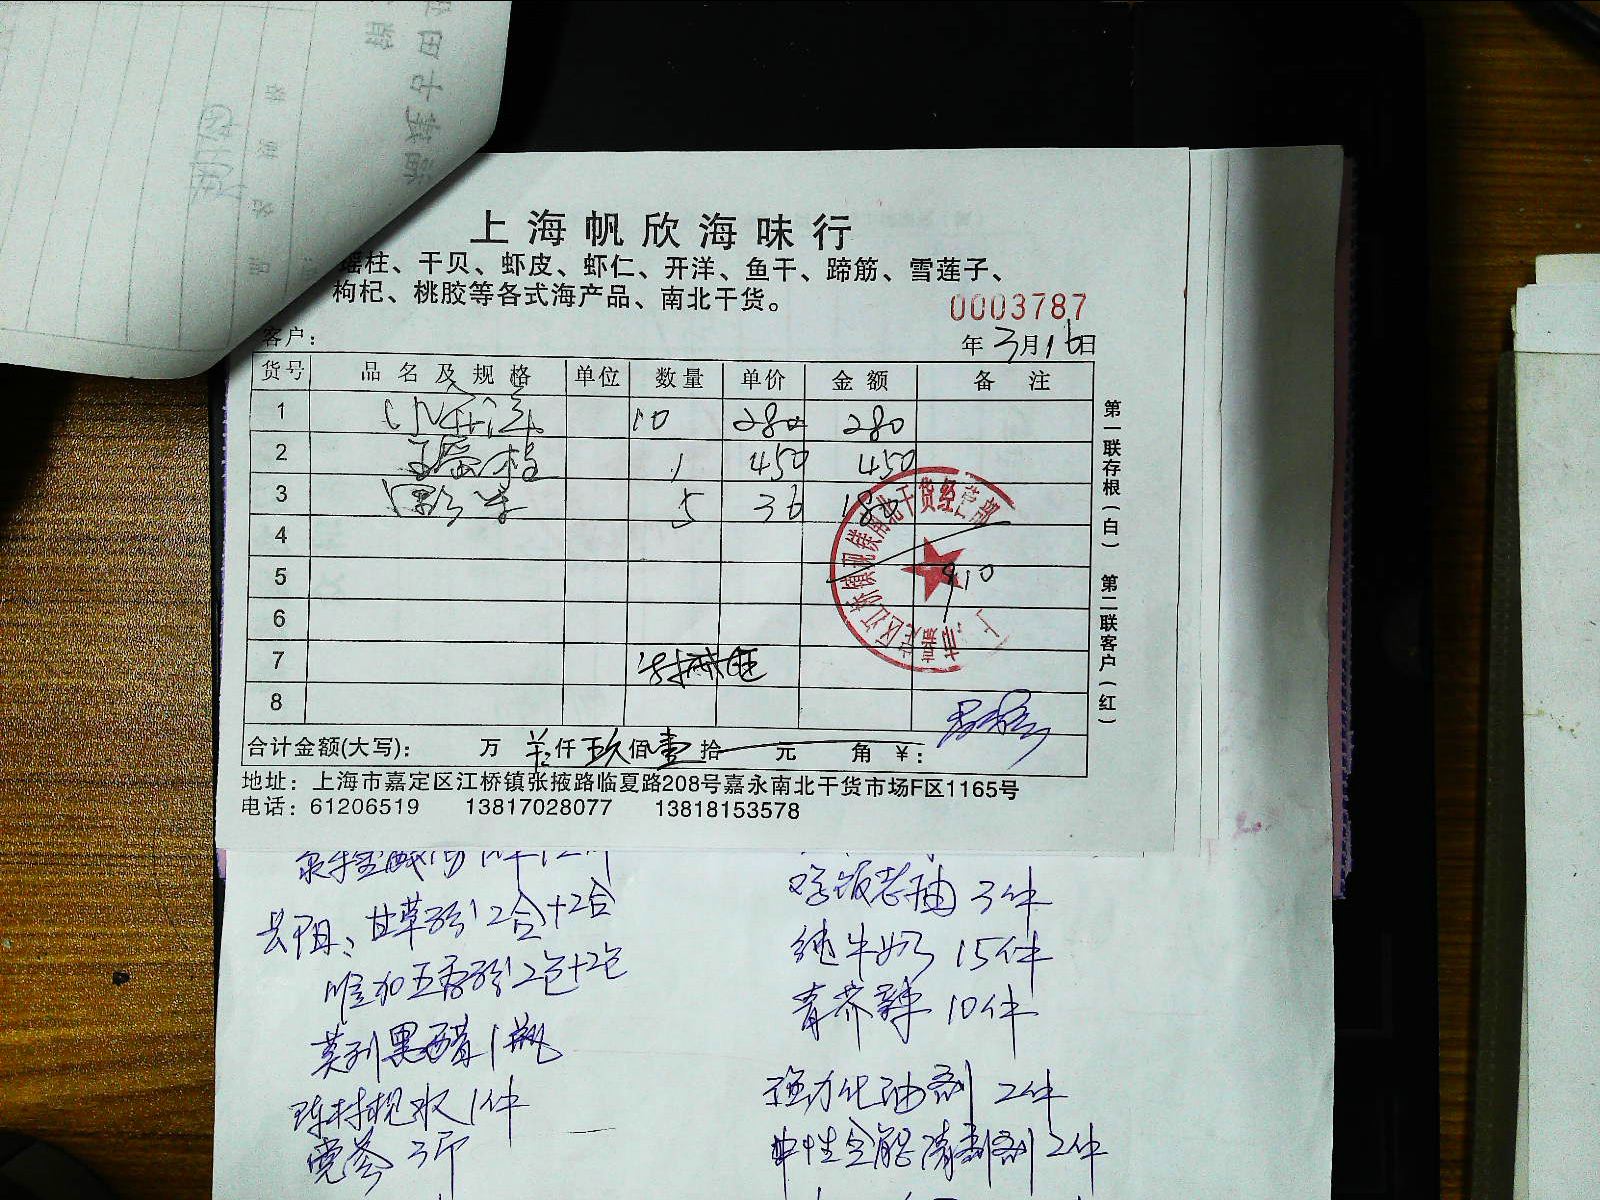 上海帆欣海味行
瑶柱、干贝、虾皮、虾仁、开洋、鱼干、蹄筋、雪莲子、
枸杞、桃胶等各式海产品、南北干货。
0003787
客户：
年3月16日
货号 品名及规格 单位 数量 单价 金额 备注
1 10 280 280
2 1 450 450
3 5 36 180
4
5 910
6
7
8
合计金额(大写)： 万 仟玖佰壹拾 元 角 ￥：
地址：上海市嘉定区江桥镇张掖路临夏路208号嘉永南北干货市场F区1165号
电话：61206519 13817028077 13818153578
第一联存根(白) 第二联客户(红)
南北干货经营部
甘草粉2合+2合
五香粉2包+2包
黑醋1瓶
陈村枧水1件
党参3斤
老抽3件
纯牛奶15件
青芥辣10件
强力化油剂2件
中性全能清洁剂2件